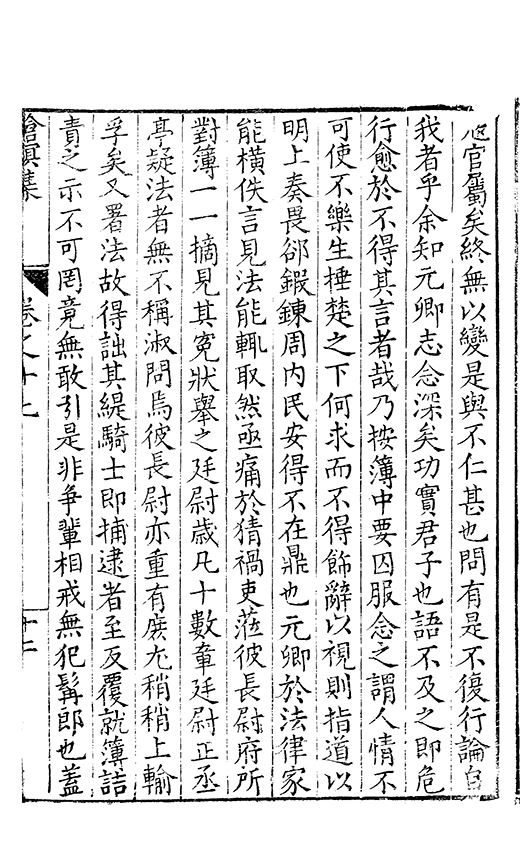 官屬矣終無以變是與不仁甚也問有是不復行論自
我者乎余知元卿志念深矣功實君子也語不及之即危
行愈於不得其言者哉乃按簿中要囚服念之謂人情不
可使不樂生捶楚之下何求而不得飾辭以視則指道以
明上奏畏郤鍜鍊周內民安得不在鼎也元卿於法律家
能橫佚言見法能輒取然亟痛於猜禍吏蒞彼長尉府所
對簿一一摘見其寃狀舉之廷尉歲凡十數章廷尉正丞
亭疑法者無不稱淑問焉彼長尉亦重有庶尤稍稍上輸
孚矣又署法故得詘其緹騎士即捕逮者至反覆就簿詰
責之示不可罔竟無敢引是非争輩相戒無犯髯郎也蓋
滄溟集
卷之十七
十二